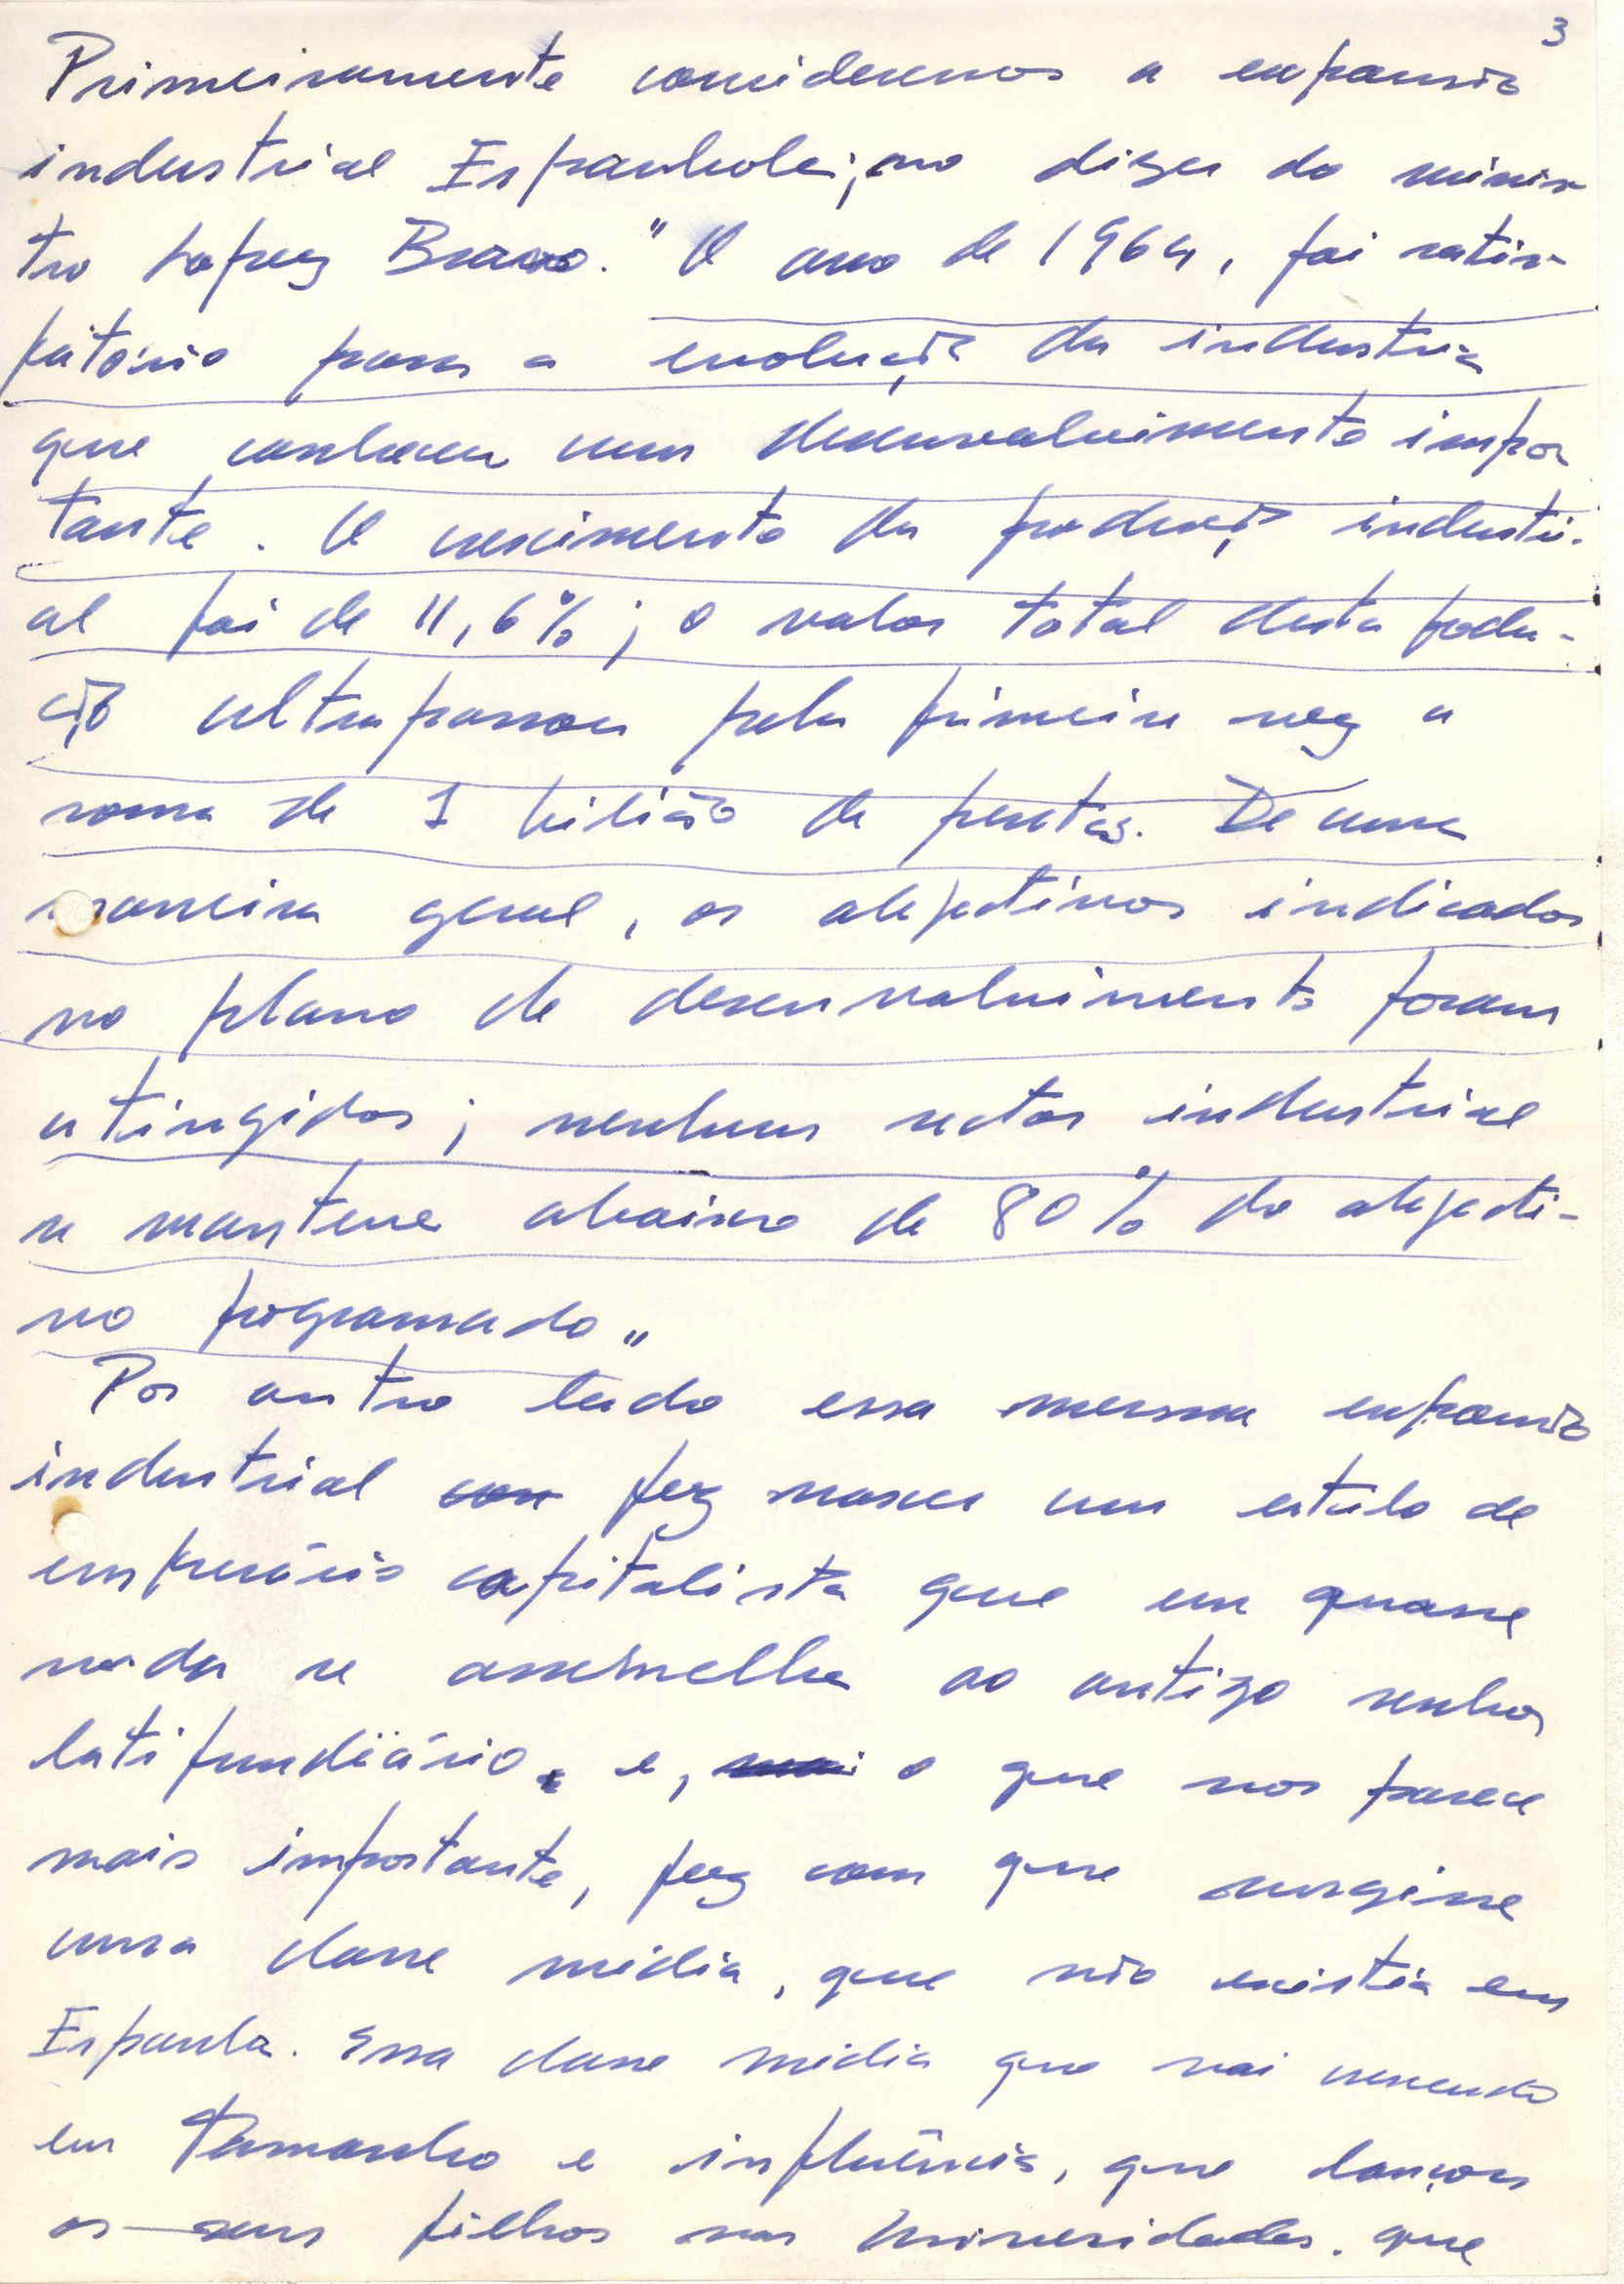 3
Primeiramente consideremos a expansão
industrial Espanhola; no dizer do minis-
tro Lopez Bravo. "O ano de 1964, foi satis-
fatório para a evolução da industria
que conheceu um desenvolvimento impor
tante. O crescimento da produção industri-
al foi de 11,6%; o valor total desta produ-
ção ultrapassou pela primeira vez a
soma de 1 bilião de pesetas. De uma
maneira geral, os objectivos indicados
no plano de desenvolvimento foram
atingidos; nenhum sector industrial
se manteve abaixo de 80% do objecti-
vo programado"
Por outro lado essa mesma expansão
industrial fez nascer um estilo de
empresário capitalista que em quasse
nada se assemelha ao antigo senhor
latifundiário, e, o que nos parece
mais importante, fez com que surgisse
uma classe média, que não existia em
Espanha. Essa classe média que vai crescendo
em Tamanho e influência, que lançou
os seus filhos nas Universidades. que